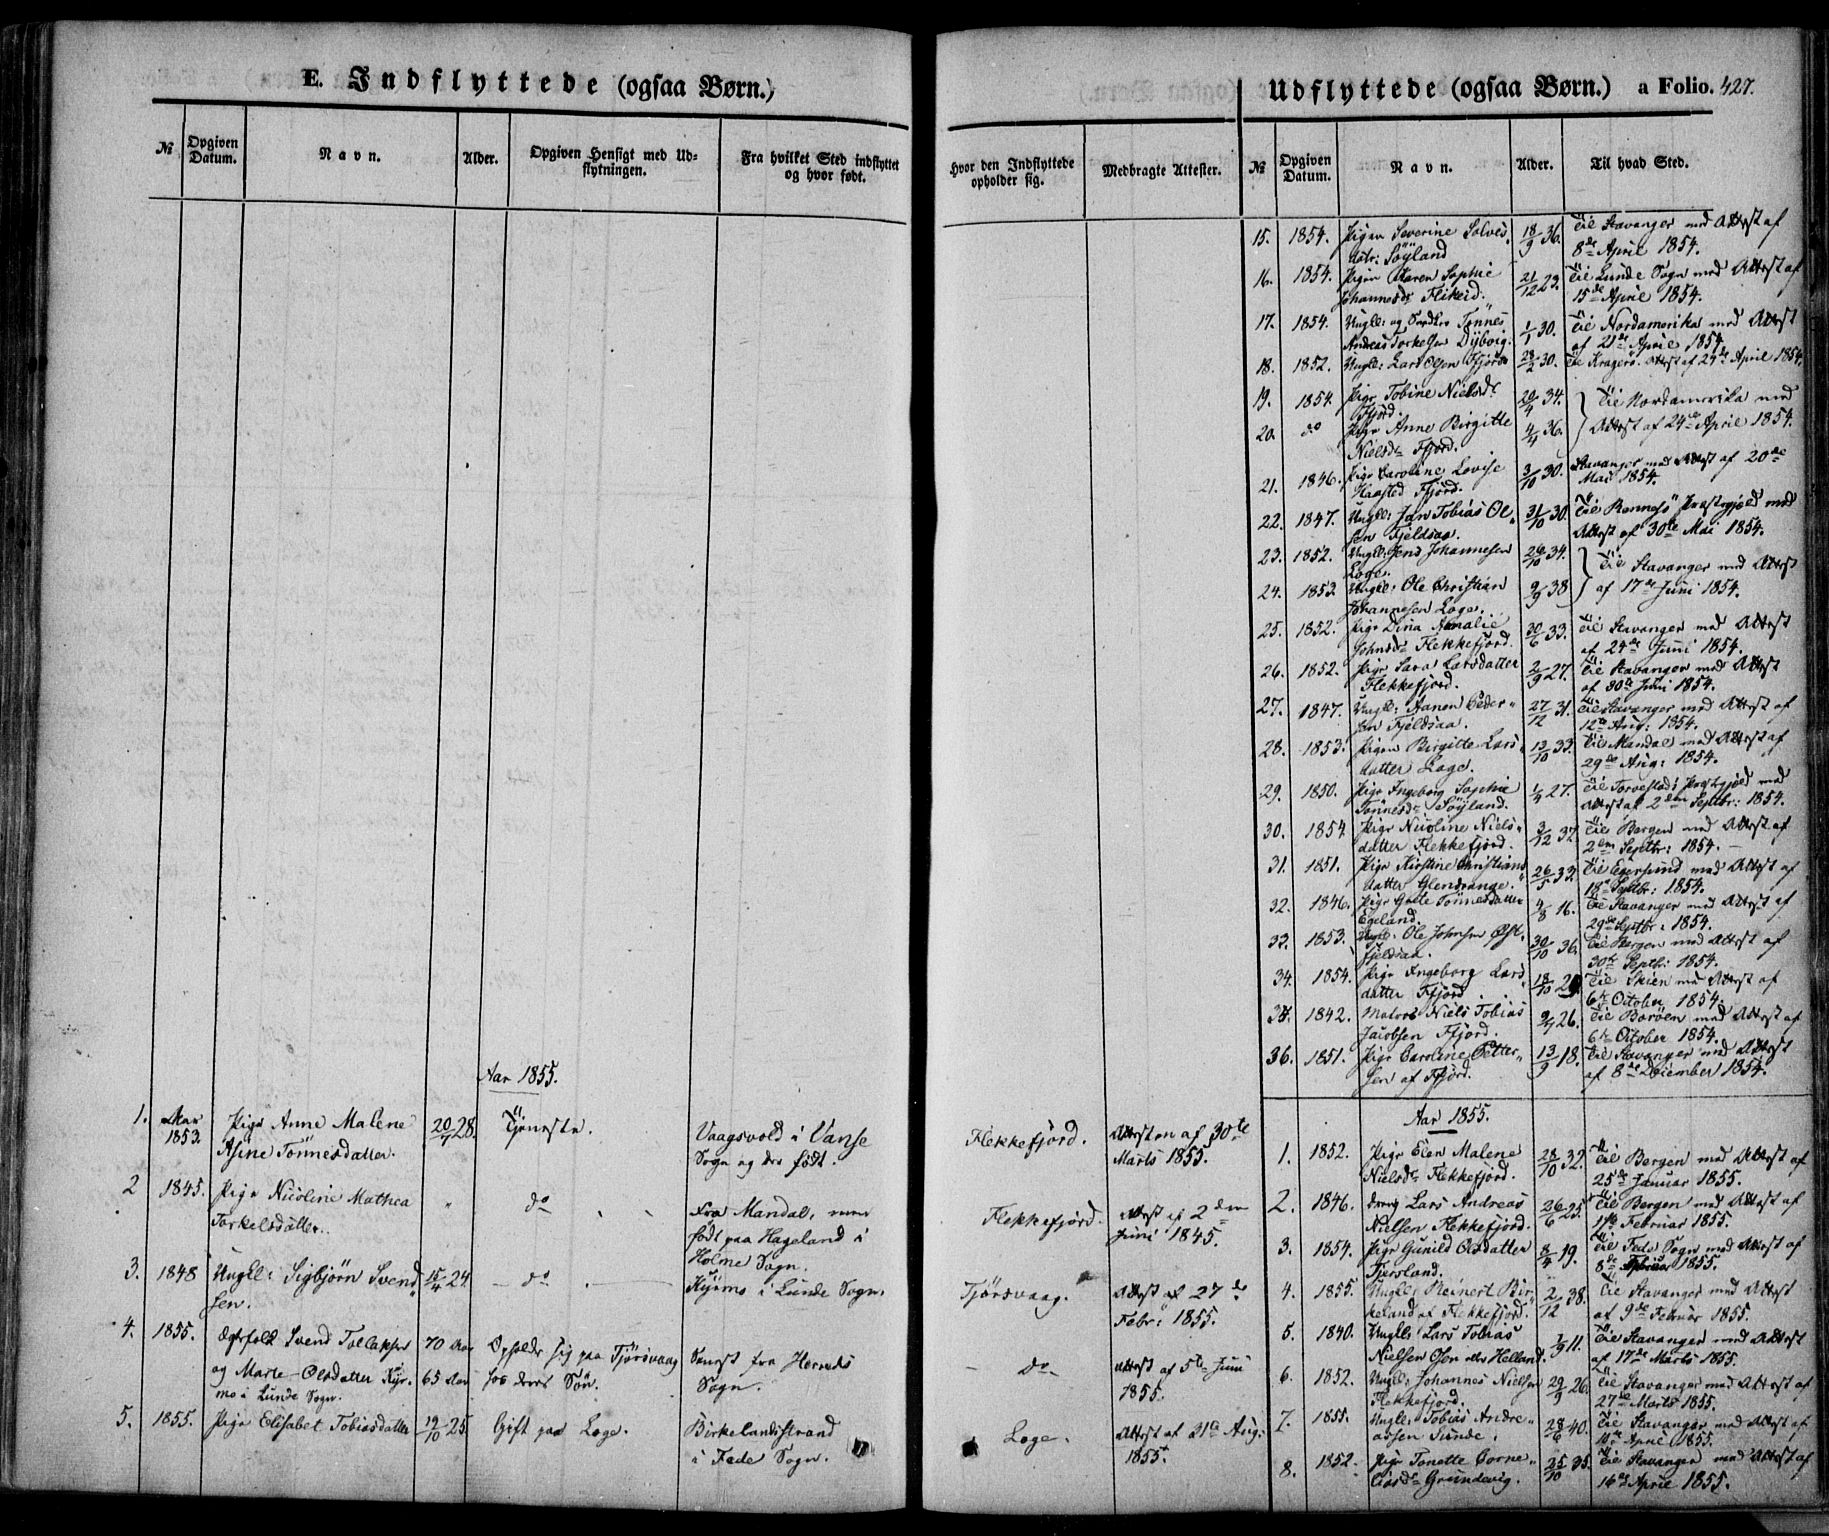 E. Indflyttede (ogsaa Børn.)
№ Opgiven Datum. Navn. Alder. Opgiven Hensigt med Udflytningen. Fra hvilket Sted indflyttet og hvor født.
Aar 1855.
1. 1853. Pige Anne Malene 20/4 28. Tjeneste. Vaagsvold i Vanse
Asine Tönnesdatter. Sogn og der født.
2 1845. Pige Nicoline Mathea " do Fra Mandal, men
Torkelsdatter. født paa Hageland i
Holme Sogn.
3. 1848 Ungk: Sigbjørn Svend 15/4 24. do Kjørmo i Lunde Sogn.
sen.
4. 1855. Ægtefolk Svend Tollaksen 70 Aar Opholder sig paa Tjørsvaag Senest fra Herreds
og Marte Olsdatter Kjør- 65 Aar hos deres Søn. Sogn.
mo i Lunde Sogn.
5. 1855. Pige Elisabet Tobiasdatter 19/10 25. Gift paa Loge. Birkelandsstrand
i Fede Sogn.
Hvor den Indflyttede opholder sig. Medbragte Attester.
Flekkefjord. Attesten af 30te
Marts 1855.
Flekkefjord. Attest af 2den
Juni 1845.
Tjørsvaag. Attest af 27de
Febr: 1855.
do Attest af 5te Juni
1855.
Loge. Attest af 31te Aug:
1855.
Udflyttede (ogsaa Børn.) a Folio. 427.
№ Opgiven Datum. Navn. Alder. Til hvad Sted.
15. 1854. Pigen Severine Solves 18/9 36. Til Stavanger med Attest af
datr: Söyland 8de April 1854.
16. 1854. Pigen Karen Sophie 21/12 23. Til Lunde Sogn med Attest af
Johannesdr Flikeid. 15de April 1854.
17. 1854. Ungk: og Snedker Tønnes 1/1 30. Til Nordamerika med Attest
Andreas Torkelsen Dyborg. af 21de April 1854.
18. 1852. Ungk: Lars Olsen Ffjord 28/2 30. Til Kragerö. Attest af 24de April 1854.
19. 1854. Pige Tobine Nielsdr 20/4 34. Til Nordamerika med
Ffjord. Attest af 24de April 1854.
20. do Pige Anne Birgitte 4/4 36.
Nielsdr Ffjord.
21. 1846. Pige Caroline Lovise 3/10 30. Stavanger med Attest af 20de
Haasted Ffjord. Mai 1854.
22. 1847. Ungk: Jan Tobias Ol 31/10 30. Til Rennesö Præstegjeld med
sen Fjeldsaa. Attest af 30te Mai 1854.
23. 1852. Ungk: Jens Johannesen 26/10 34. Til Stavanger med Attest
Loge. af 17de Juni 1854.
24. 1853. Ungk: Ole Christian 9/9 38
Johannesen Loge.
25. 1852. Pige Dina Amalie 30/6 33. Til Stavanger med Attest
Johnsdr Flekkefjord. af 24de Juni 1854.
26. 1852. Pige Sara Larsdatter 2/9 27. Til Stavanger med Attest
Flekkefjord. af 30te Juni 1854.
27. 1847. Ungk: Aanen Peder 27/12 31. Til Stavanger med Attest af
sen Fjeldsaa. 12te Aug: 1854.
28. 1853. Pigen Birgitte Lars 13/10 33. Til Mandal med Attest af
datter Loge. 29de Aug: 1854.
29. 1850. Pige Ingeborg Sophie 1/4 27. Til Torvestads Præstegjeld med
Tönnesdr Söyland. Attest af 2den Septbr: 1854.
30. 1854 Pige Nicoline Niels 3/12 37. Til Bergen med Attest af
datter Flekkefjord. 2den Septbr: 1854.
31. 1851. Pige Kirstine Christians 26/5 33. Til Egersund med Attest af
datter Glendrange. 18de Septbr: 1854.
32. 1846. Pige Grete Tönnesdatter 4/8 16. Til Stavanger med Attest af
Egeland. 29de Septbr: 1854.
33. 1853. Ungk: Ole Johnsen Øst 30/10 36. Til Bergen med Attest af
fjeldsaa. 30te Septbr: 1854.
34. 1854. Pige Ingeborg Lars 18/10 Til Skien med Attest af
datter Ffjord 6te October 1854.
35. 1842. Matros Niels Tobias 9/4 26. Til Boröen med Attest af
Jacobsen Ffjord. 6te October 1854.
36. 1851. Pige Caroline Petter 13/9 18. Til Stavanger med Attest
sen af Ffjord. af 8de December 1854.
Aar 1855.
1. 1852. Pige Elen Malene 28/10 32. Til Bergen med Attest af
Nielsdr Flekkefjord. 25de Januar 1855.
2. 1846. Lars Andreas 26/6 25. Til Bergen med Attest af
Nielsen Flekkefjord. Februar 1855.
3. 1854. Pige Gunild Olsdatter 8/4 19. Til Fede Sogn med Attest af
Fjersland. 8de Februar 1855.
4. 1855. Ungk: Reinert Bir 2/12 38. Til Stavanger med Attest
keland af Flekkefjord. af 9de Februar 1855.
5. 1840. Ungk: Lars Tobias 1/9 11. Til Stavanger med Attest
Nielsen Helland. af 17de Marts 1855.
6. 1852. Ungk: Johannes Nielsen 29/9 26. Til Stavanger med Attest af
Flekkefjord. 27de Marts 1855.
7. 1855. Ungk: Tobias Andre 28/6 40. Til Stavanger med Attest af
assen Sunde. April 1855.
8. 1852. Pige Tonette Corne 25/10 35. Til Stavanger med Attest af
liusdr Grundevig. 16de April 1855.